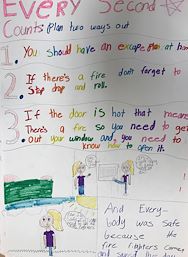 Every Second
Counts Plan two ways out
1. You should have an excape plan at home
2. If there's a fire don't forget to
Stop drop and roll.
3. If the door is hot that means
There's a fire so you need to get
out your window and, you need to
know how to open it.
And Every-
body was safe
because the
fire fighters came
and saved the